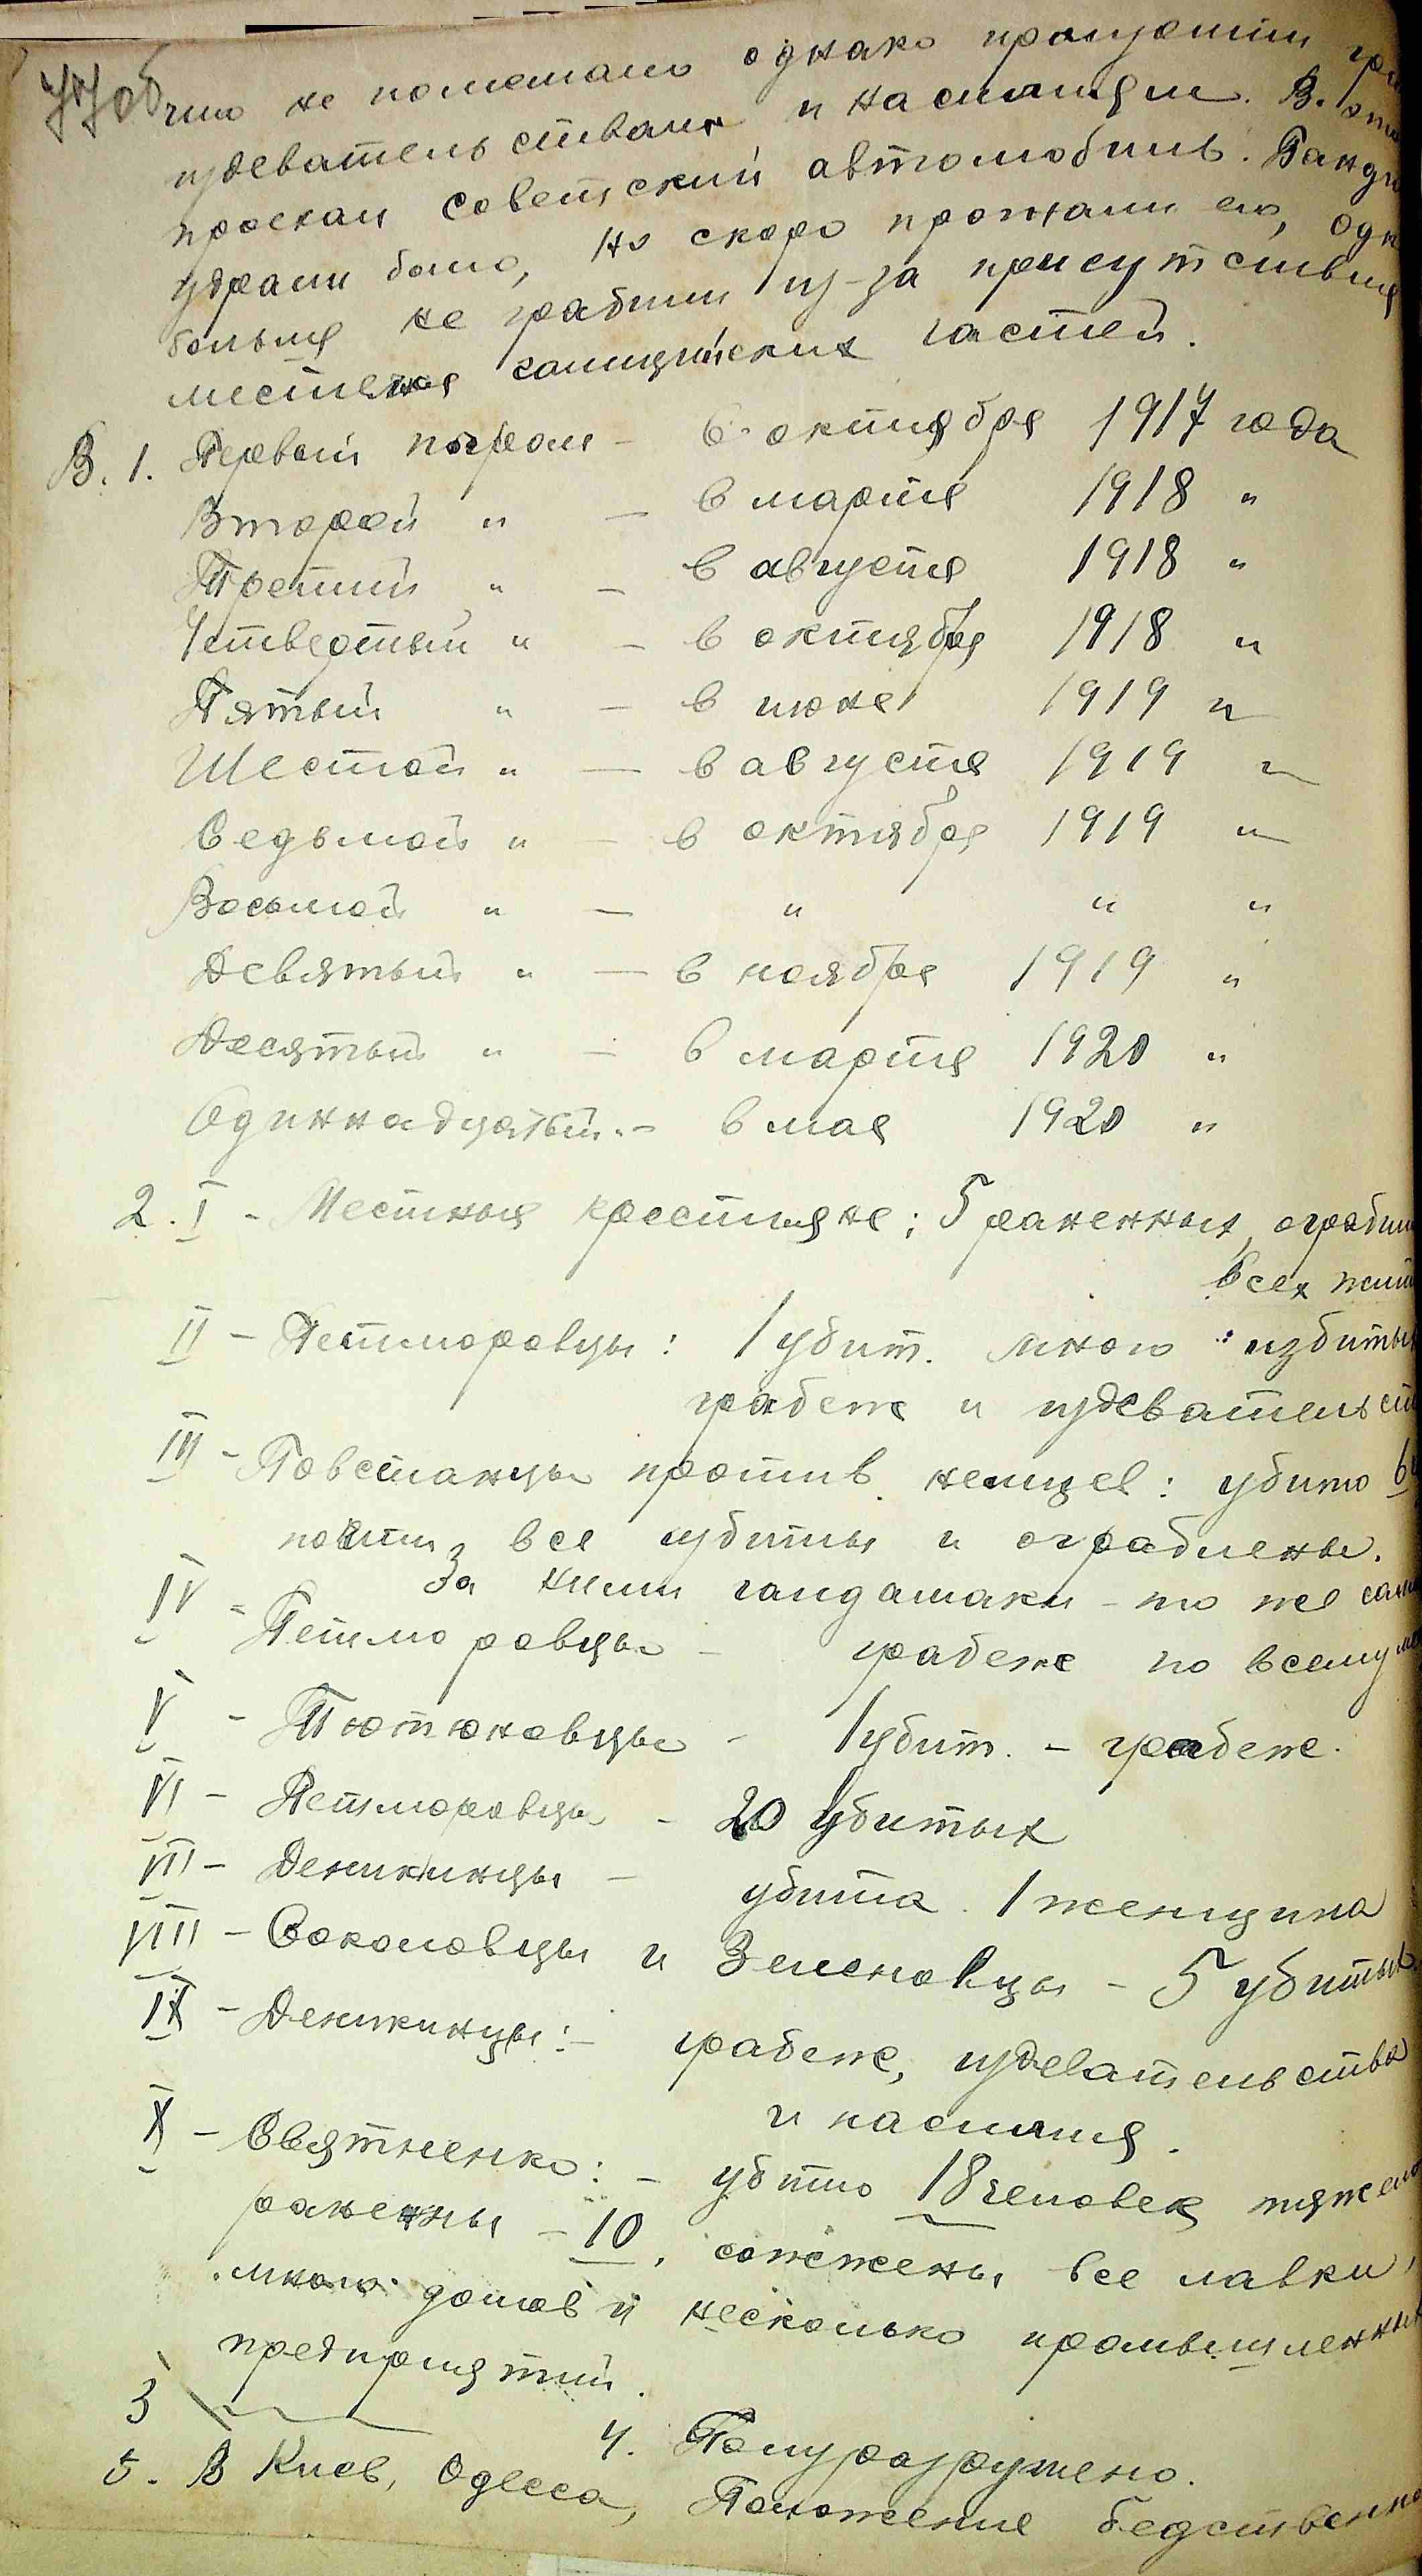 что не помешало однако прошедшим
издевательствам и насилиям. В. это
проехал советский автомобиль. Банди
удрали было, но скоро прогнали его, одн
больше не грабили из-за присутствия
местечке галицийских частей.
В. 1. Первый погром – в октябре 1917 года
Второй " – в марте 1918 "
Третий " – в августе 1918 "
Четвертый " – в октябре 1918 "
Пятый " – в июне 1919 "
Шестой " – в августе 1919 "
Седьмой " – в октябре 1919 "
Восьмой " – " " "
Девятый " – в ноябре 1919 "
Десятый " – в марте 1920 "
Одиннадцатый – в мае 1920 "
2. I – Местные крестьяне; 5 раненных, ограбили
всех жит
II – Петлюровцы: 1 убит. много избитых
грабеж и издевательст
III – Повстанцы против немцев: убито
почти все избиты и ограблены.
За ними гайдамаки – то же сам
IV – Петлюровцы – грабеж по всему
V – Тютюновцы – 1 убит. – грабеж.
VI – Петлюровцы – 20 убитых
VII – Деникинцы – убита 1 женщина
VIII – Соколовцы и Зеленовцы – 5 убитых.
IX – Деникинцы: – грабеж, издевательства
и насилия.
X – Святненко: – убито 18 человек тяжело
ранены – 10, сожжены все лавки,
много домов и несколько промышленных
предприятий.
3
4. Полуразрушено.
5. В Киев, Одесса, Положение бедственно